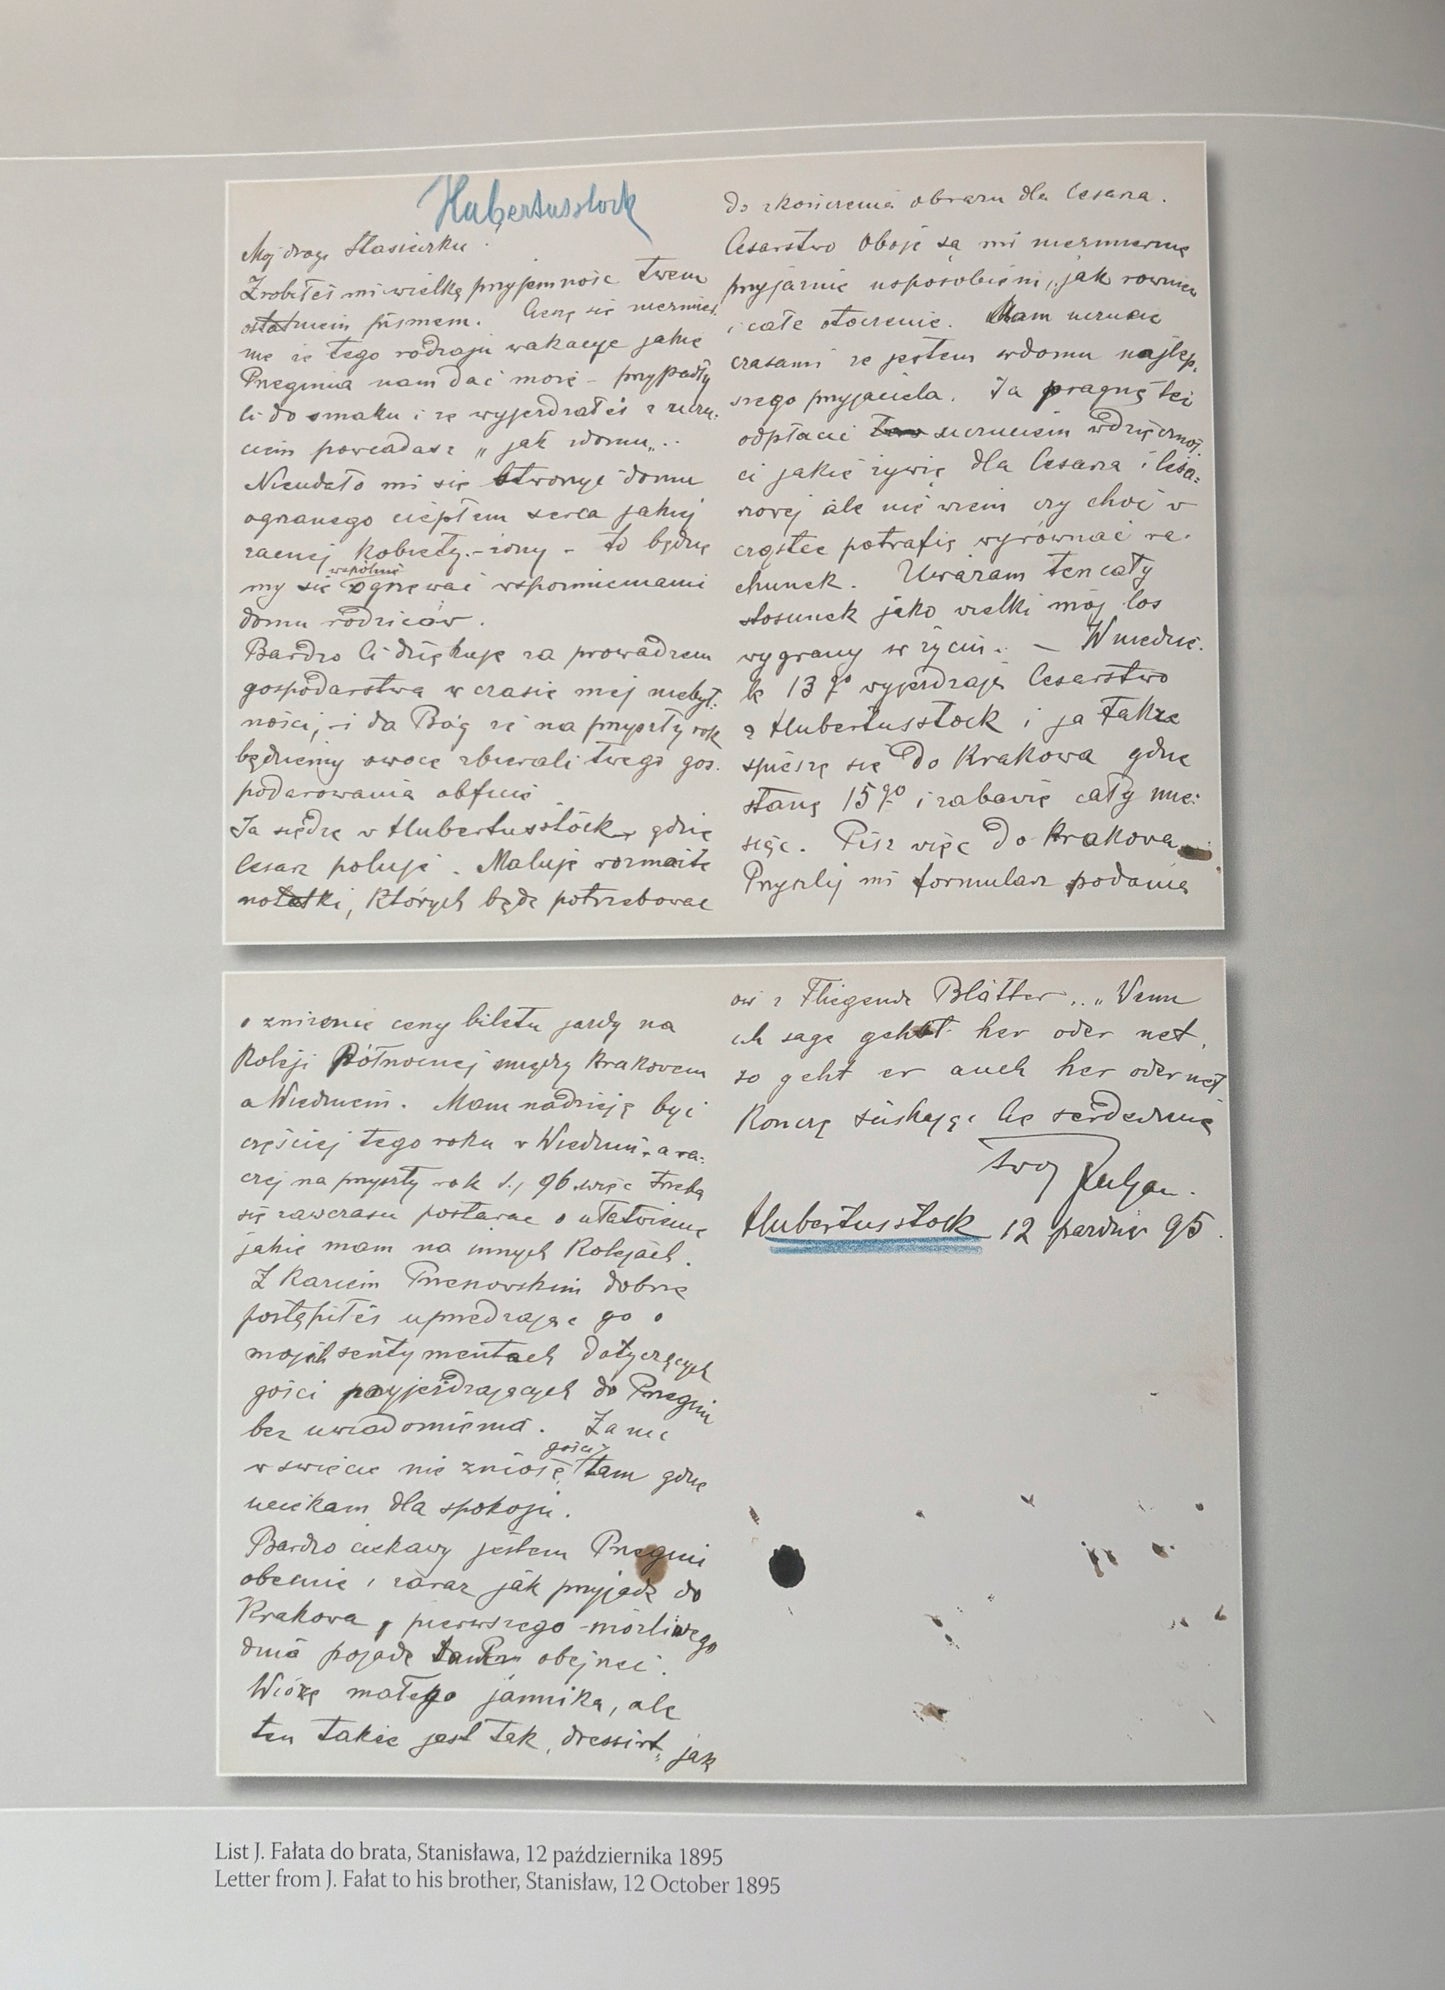 Hubertusstock
Mój drogi Stasieczku!
Zrobiłeś mi wielką przyjemność twem
ostatniem pismem. Cieszę się niezmier
nie że tego rodzaju wakacye jakie
Pneginia nam dać może – przypadły
Ci do smaku i że wyjeżdżałeś z uczu
ciem powiadasz „jak z domu„..
Nieudało mi się stworzyć domu
ogrzanego ciepłem serca jakiej
zacnej kobiety – żony – to będzie
wspólnie
my się ogrzewać wspomnieniami
domu rodziców.
Bardzo Ci dziękuję za prowadzenie
gospodarstwa w czasie mej niebyt-
ności, – i da Bóg że na przyszły rok
będziemy owoce zbierali twego gos.
podarowania obficie
Ja siedzę w Hubertusstock, gdzie
Cesarz poluje. Maluję rozmaite
notatki, których będę potrzebować
do skończenia obrazu dla Cesarza.
Cesarstwo Oboje są mi niezmiernie
przyjaźnie usposobieni, jak również
i całe otoczenie. Mam uczucie
czasami że jestem w domu najlep.
szego przyjaciela. Ja pragnę też
odpłacić uczuciem wdzięcznoś
ci jakie żywię dla Cesarza i Cesa=
rzowej ale nie wiem czy choć w
cząstce potrafię wyrównać ra-
chunek. Uważam ten cały
stosunek jako wielki mój los
wygrany w życiu. – W niedzie.
lę 13go wyjeżdżają Cesarstwo
z Hubertusstock i ja także
spieszę się do Krakowa gdzie
stanę 15go i zabawię cały mie-
siąc. Pisz więc do Krakowa
Przyszlij mi formularz podania
o zniżenie ceny biletu jazdy na
Koleji Północnej między Krakowem
a Wiedniem. Mam nadzieję być
częściej tego roku w Wiedniu, a ra-
czej na przyszły rok t.j. 96 więc trzeba
się zawczasu postarać o ułatwienie
jakie mam na innych Kolejach.
Z Kaziem Pruszkowskim dobrze
postąpiłeś uprzedzając go o
mojich sentymentach dotyczących
gości przyjeżdżających do Pnegini
bez uwiadomienia. Za nic
gości
w świecie nie zniosę tam gdzie
uciekam dla spokoju.
Bardzo ciekawy jestem Pnegini
obecnie i zaraz jak przyjadę do
Krakowa, pierwszego możliwego
dnia pojadę obejrzeć.
Wiozę małego jamnika, ale
ten także jest tak „dressirt„ jak
ów z Fliegende Blätter.. „Wenn
ich sage geht her oder net,
so geht er auch her oder net
Kończę ściskając Cię serdecznie
twój Juljan.
Hubertusstock 12 paździer 95.
List J. Fałata do brata, Stanisława, 12 października 1895
Letter from J. Fałat to his brother, Stanisław, 12 October 1895